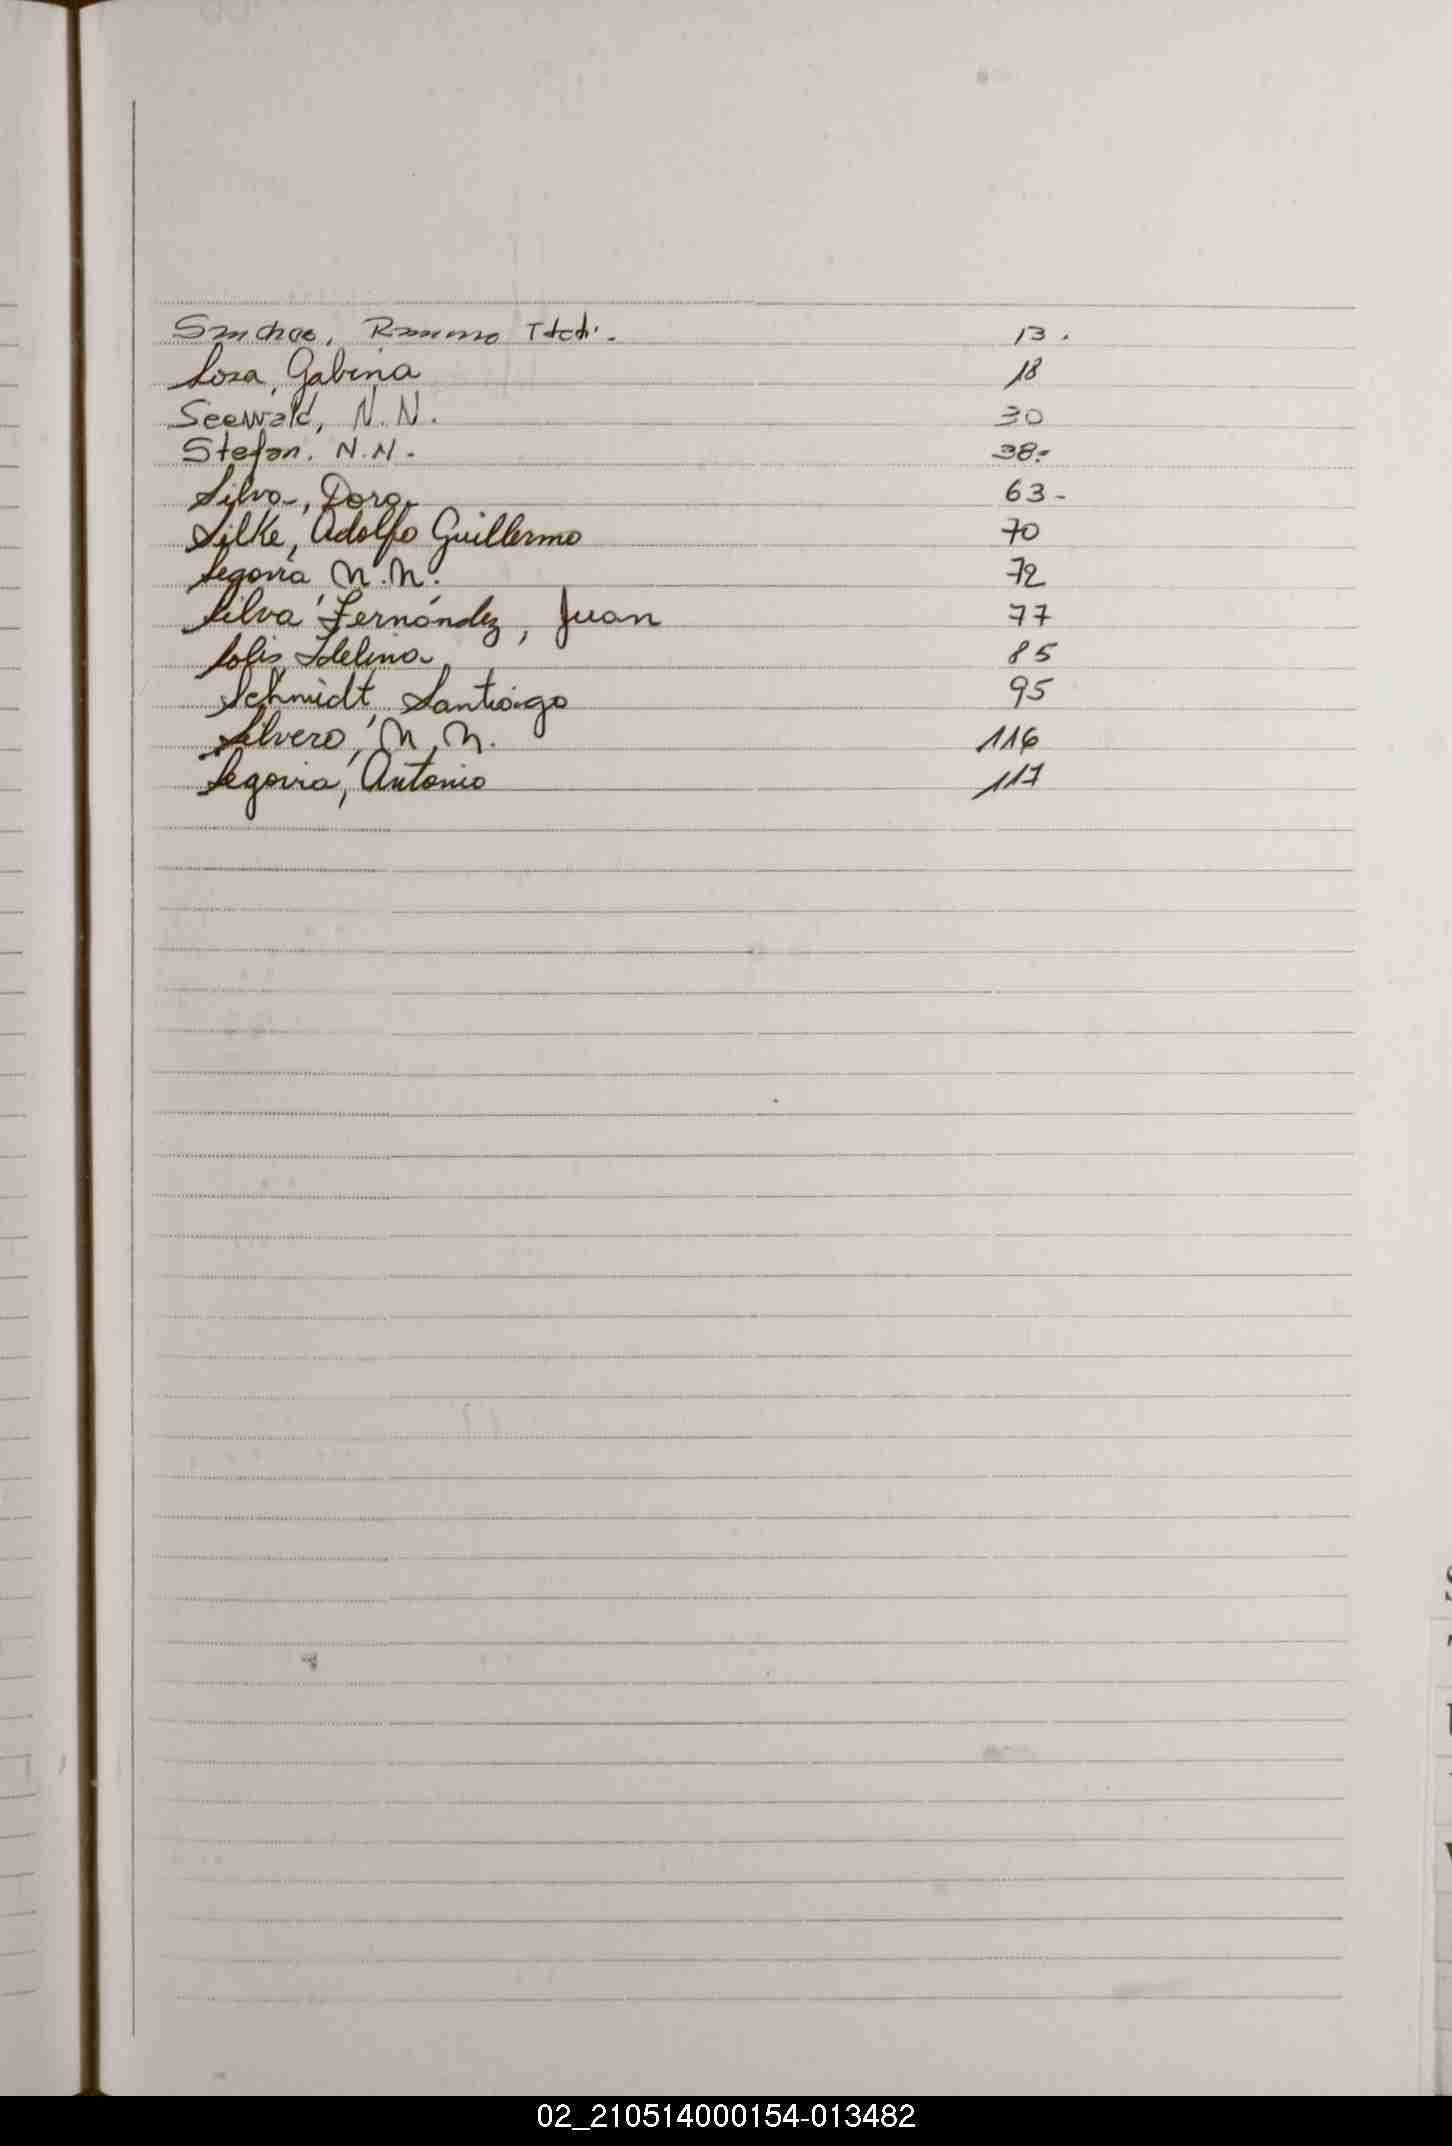 Sanchez, Ramona Itati. 13.
Sosa, Gabina 18
Seewald, N.N. 30
Stefan, N.N. 38.-
Silva, Dora. 63-
Silke, Adolfo Guillermo 70
Segovia, N.N. 72
Silva Fernández, Juan 77
Solis, Idelina 85
Schmidt, Santiago 95
Silvero, N.N. 116
Segovia, Antonio 117
02_210514000154-013482